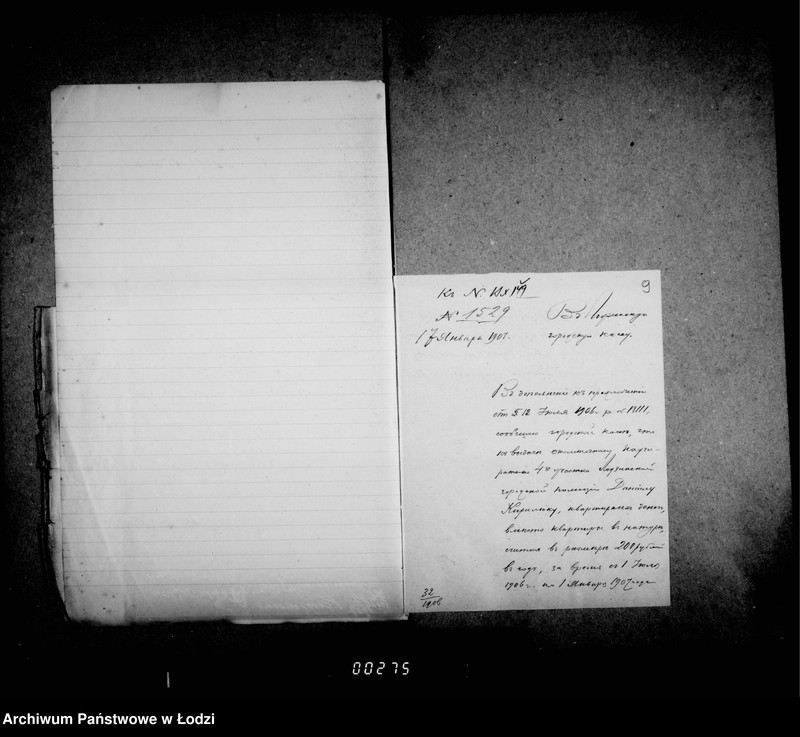 9
Къ №
№ 1529
17 Января 1907.
Въ Лодзинскую
городскую кассу.
Въ дополненіе къ предписанію
отъ 5/12 Іюля 1906 г. за № 13111,
сообщаю городской кассѣ, что
на выдачу околоточному надзи-
рателю 4го участка Лодзинской
городской полиціи Данiилу
Кирилюку, квартирныхъ денегъ,
вмѣсто квартиры въ натурѣ,
считая въ размѣрѣ 200 рублей
въ годъ, за время съ 1 Іюля
1906 г. по 1 Января 1907 года
32
1906
00275
Archiwum Państwowe w Łodzi